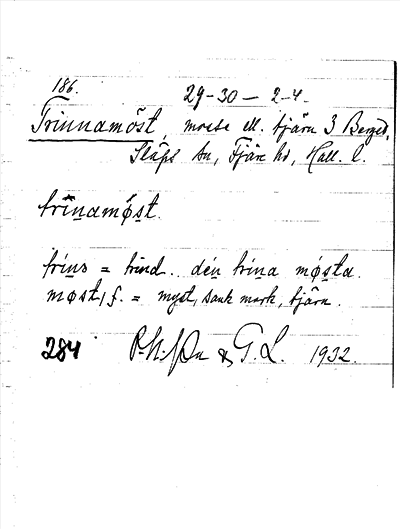 186.
29-30 — 2-4.
Trinnamöst, mosse ell. tjärn 3 Berged,
Släps sn, Fjäre hd, Hall. l.
trinamøst.
trins = trind. dén trina møsta
møst, f. = myst, sank mark, tjärn.
284 & G. L. 1932.